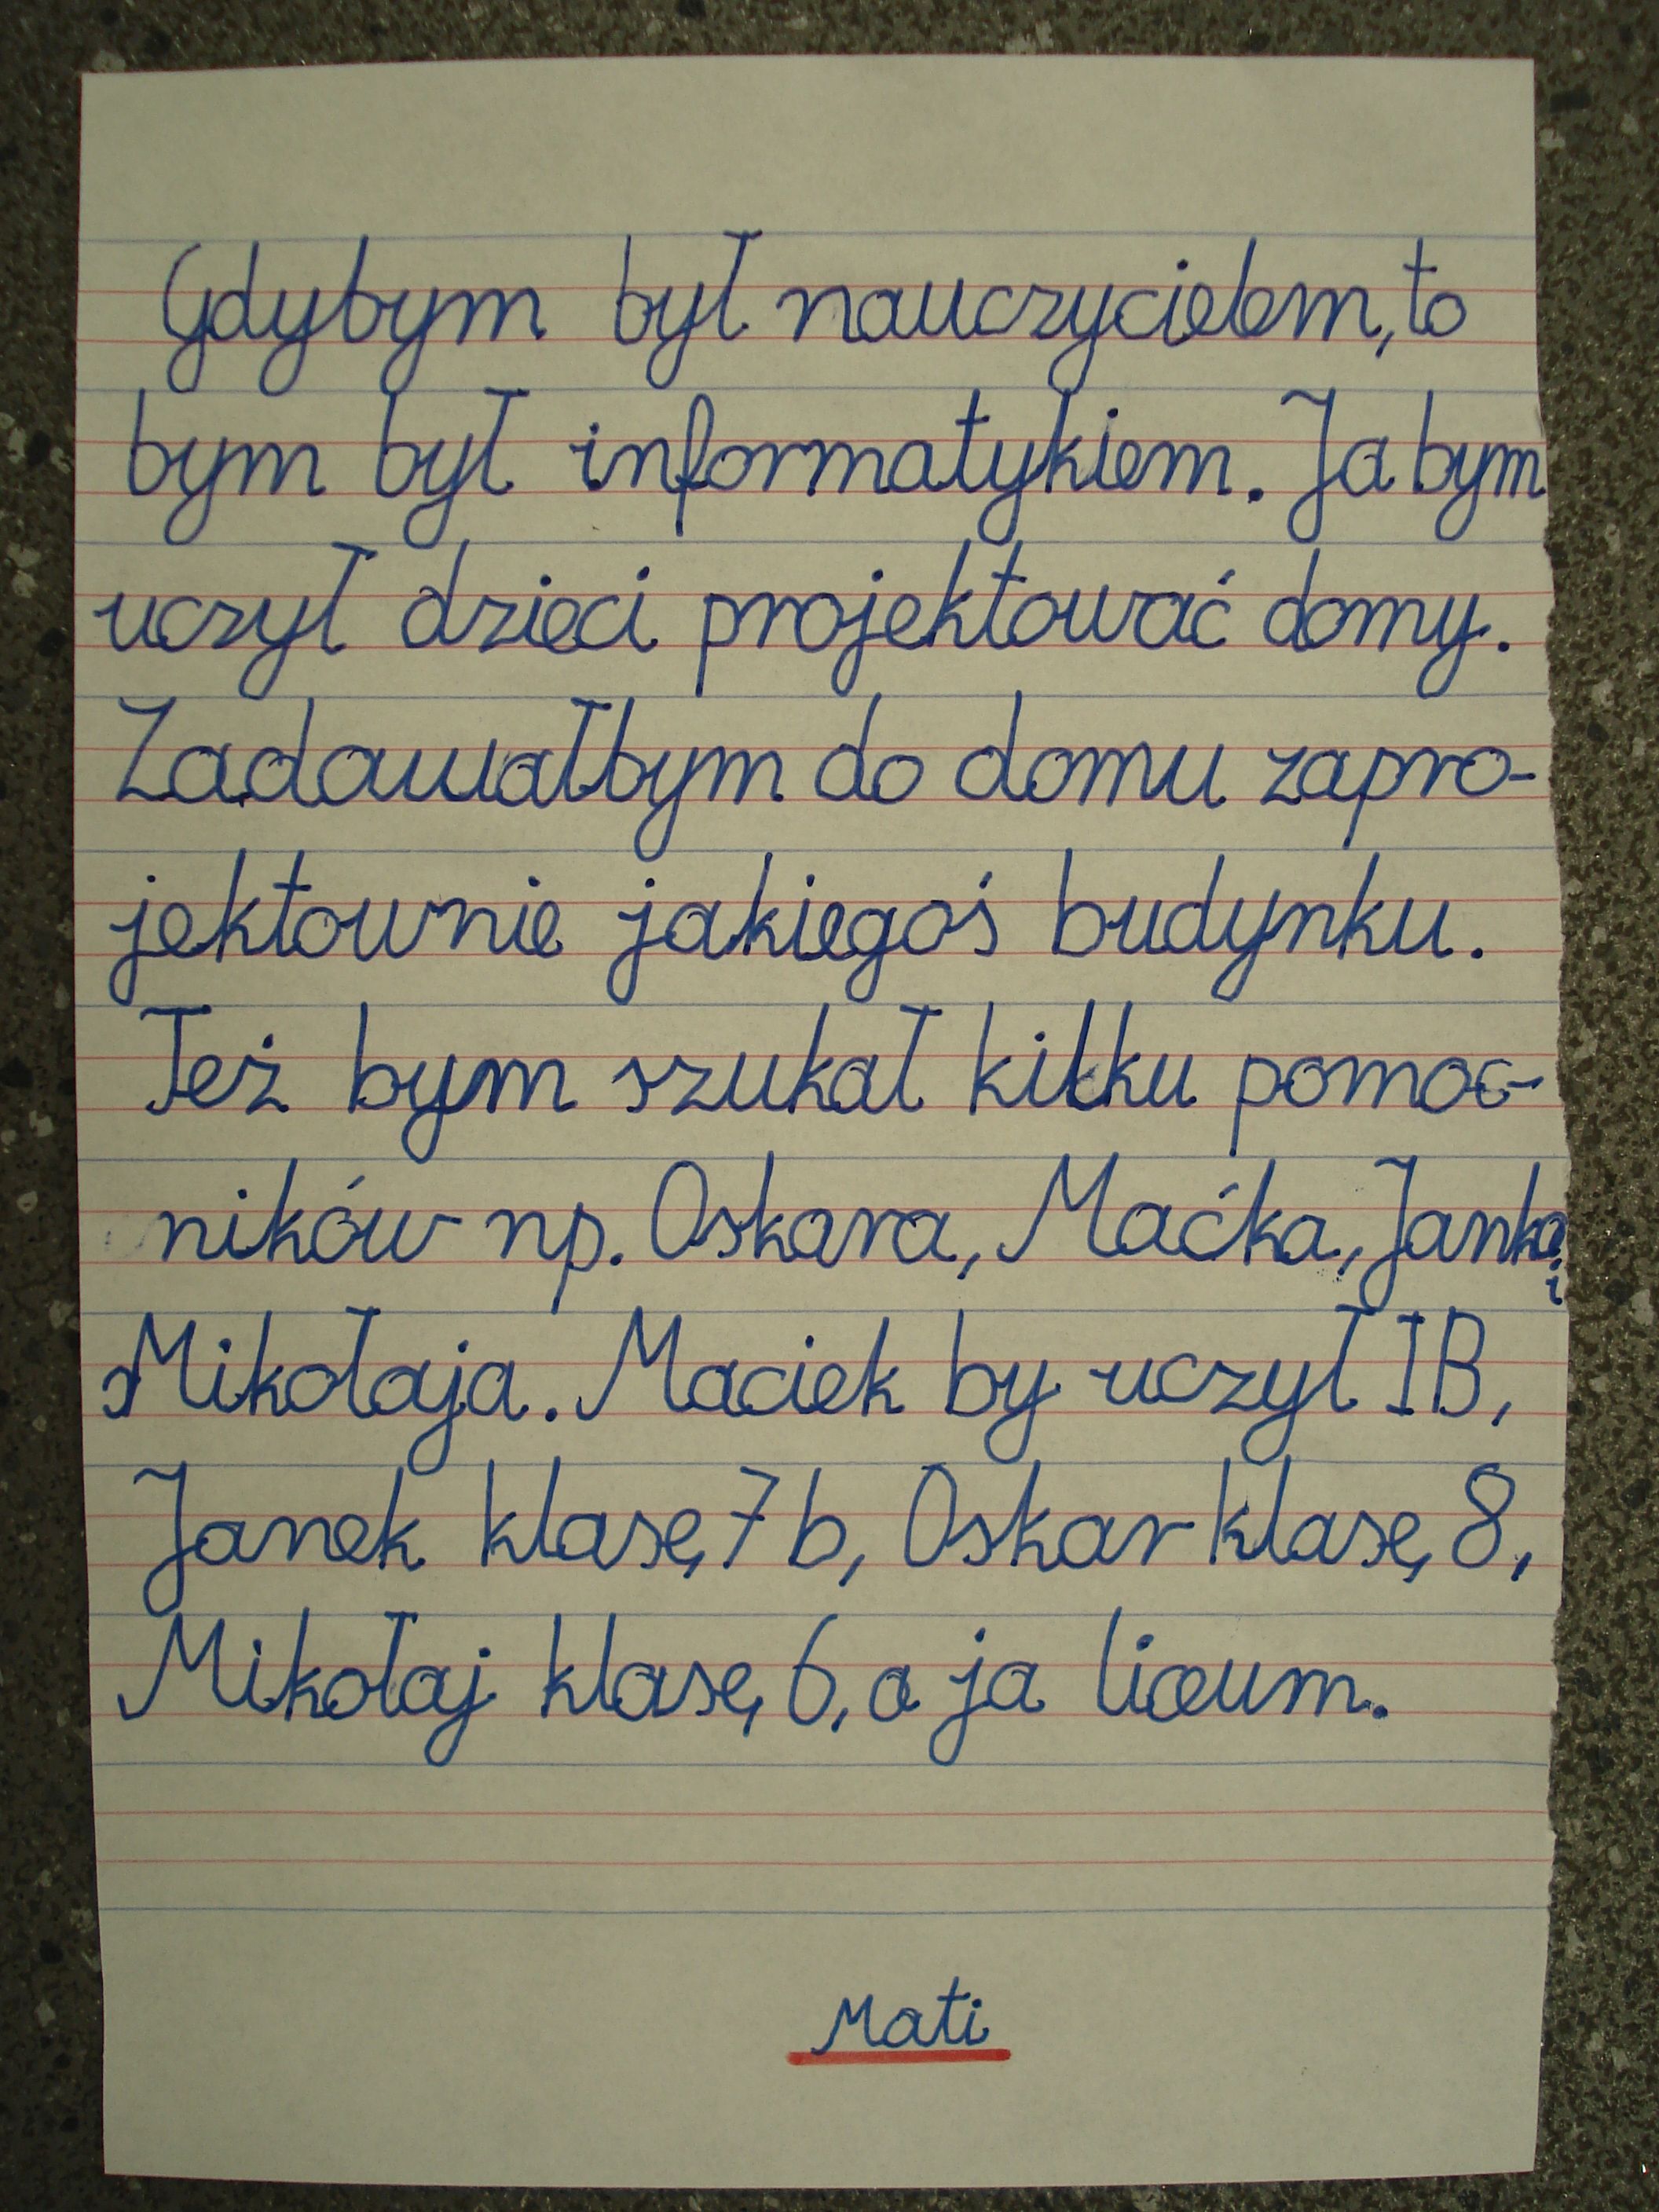 Gdybym był nauczycielem, to
bym był informatykiem. Ja bym
uczył dzieci projektować domy.
Zadawałbym do domu zapro-
jektownie jakiegoś budynku.
Też bym szukał kilku pomoc-
ników np. Oskara, Maćka, Janka i
Mikołaja. Maciek by uczył IB,
Janek klasę 7b, Oskar klasę 8,
Mikołaj klasę 6, a ja liceum.
Mati